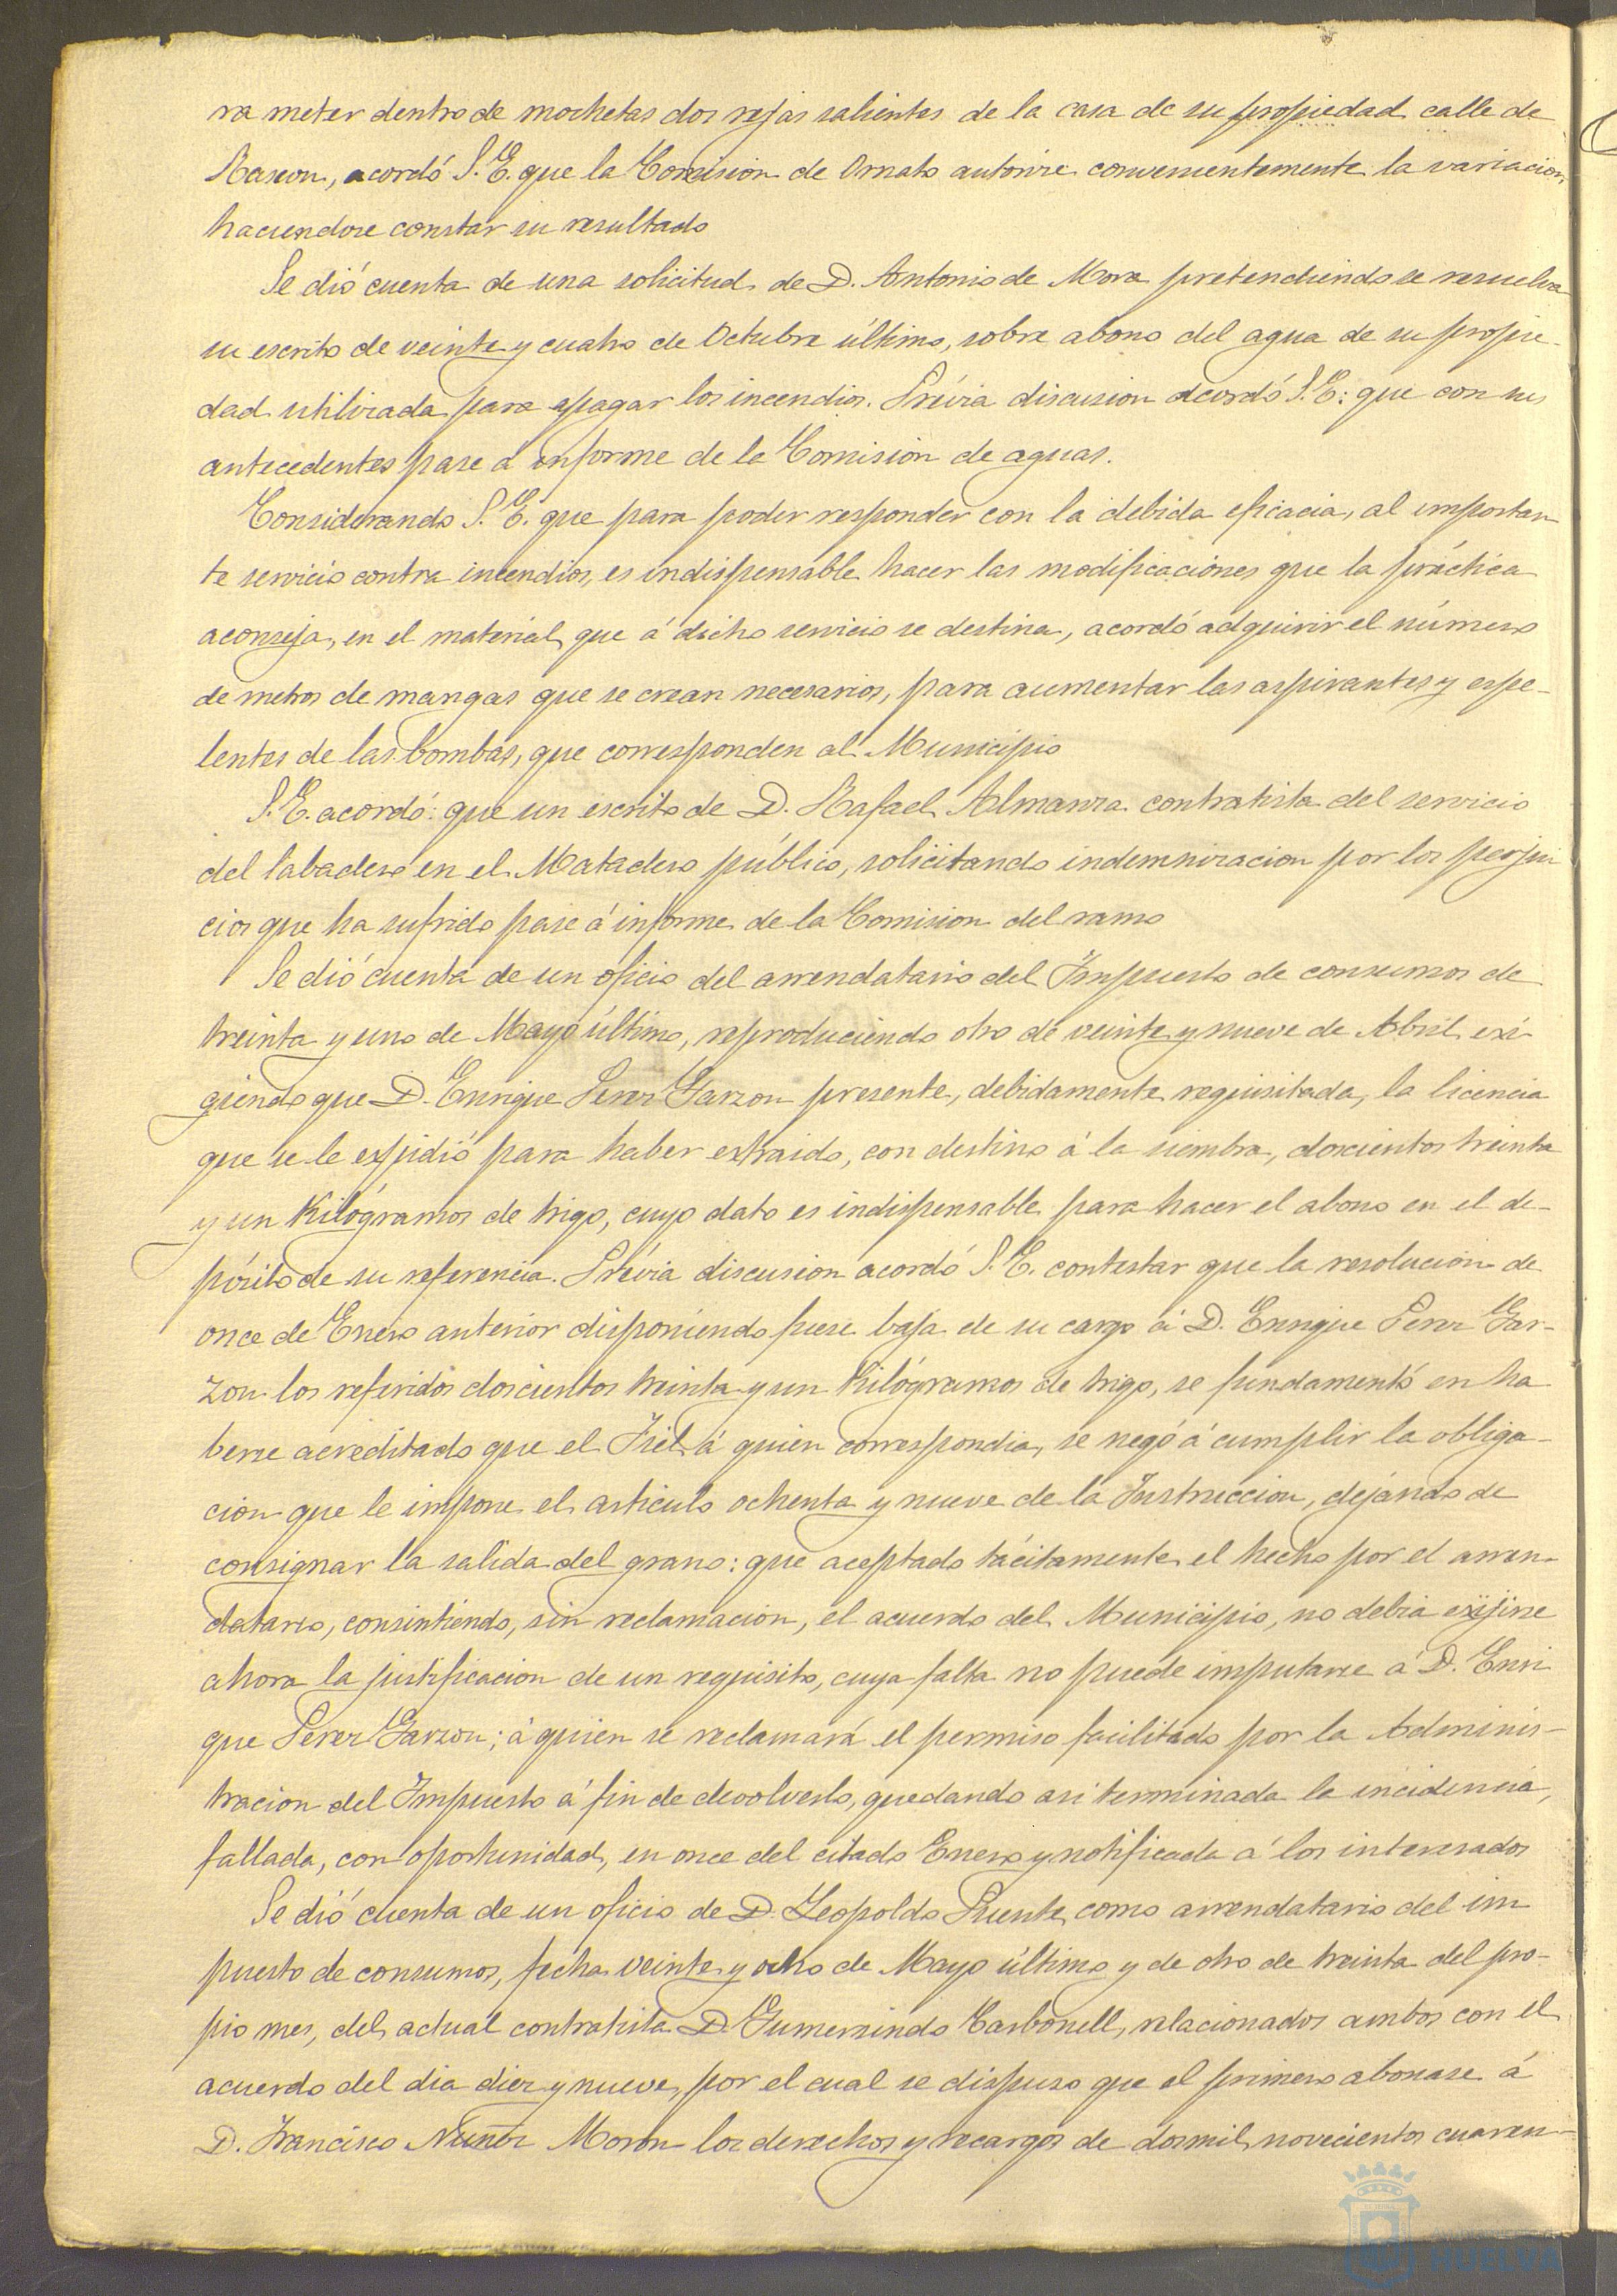 ra meter dentro de mochetas dos rejas salientes de la casa de su propiedad calle de
Rascon, acordó S. E. que la Comision de Ornato autorice convenientemente la variacion,
haciendose constar su resultado
Se dió cuenta de una solicitud de D. Antonio de Mora pretendiendo se resuelva
su escrito de veinte y cuatro de Octubre último, sobre abono del agua de su propie-
dad utilizada para apagar los incendios. Prévia discusion acordó S. E: que con sus
antecedentes pase á informe de la Comision de aguas.
Considerando S. E. que para poder responder con la debida eficacia, al importan
te servicio contra incendios, es indispensable hacer las modificaciones que la práctica
aconseja, en el material, que á dicho servicio se destina, acordó adquirir el número
de metros de mangas que se crean necesarios, para aumentar las aspirantes y espe-
lentes de las bombas, que corresponden al Municipio
S. E. acordó: que un escrito de D. Rafael Almanza contratista del servicio
del labadero en el Matadero público, solicitando indemnizacion por los perjui
cios que ha sufrido pase á informe de la Comision del ramo
Se dió cuenta de un oficio del arrendatario del Impuesto de consumos de
treinta y uno de Mayo último, reproduciendo otro de veinte y nueve de Abril exi-
giendo que D. Enrique Perez Garzon presente, debidamente requisitada, la licencia
que se le expidió para haber extraido, con destino á la siembra, doscientos treinta
y un Kilógramos de trigo, cuyo dato es indispensable para hacer el abono en el de-
pósito de su referencia. Prévia discusion acordó S. E. contestar que la resolucion de
once de Enero anterior disponiendo fuese baja de su cargo á D. Enrique Perez Gar-
zon los referidos doscientos treinta y un Kilógramos de trigo, se fundamentó en ha
berse acreditado que el Fiel, á quien correspondia, se negó á cumplir la obliga-
cion que le impone el articulo ochenta y nueve de la Instruccion, dejando de
consignar la salida del grano: que aceptado tácitamente el hecho por el arren-
datario, consintiendo, sin reclamacion, el acuerdo del Municipio, no debia exijirse
ahora la justificacion de un requisito, cuya falta no puede imputarse á D. Enri
que Perez Garzon; á quien se reclamará el permiso facilitado por la Adminis-
tracion del Impuesto á fin de devolverlo, quedando asi terminada la incidencia,
fallada, con oportunidad, en once del citado Enero y notificada á los interesados
Se dió cuenta de un oficio de D. Leopoldo Puente, como arrendatario del im
puesto de consumos, fecha veinte y ocho de Mayo último y de otro de treinta del pro-
pio mes, del actual contratista D. Gumersindo Carbonell, relacionados ambos con el
acuerdo del dia diez y nueve, por el cual se dispuso que el primero abonase á
D. Francisco Nuñez Moron los derechos y recargos de dos mil novecientos cuaren-
HUELVA